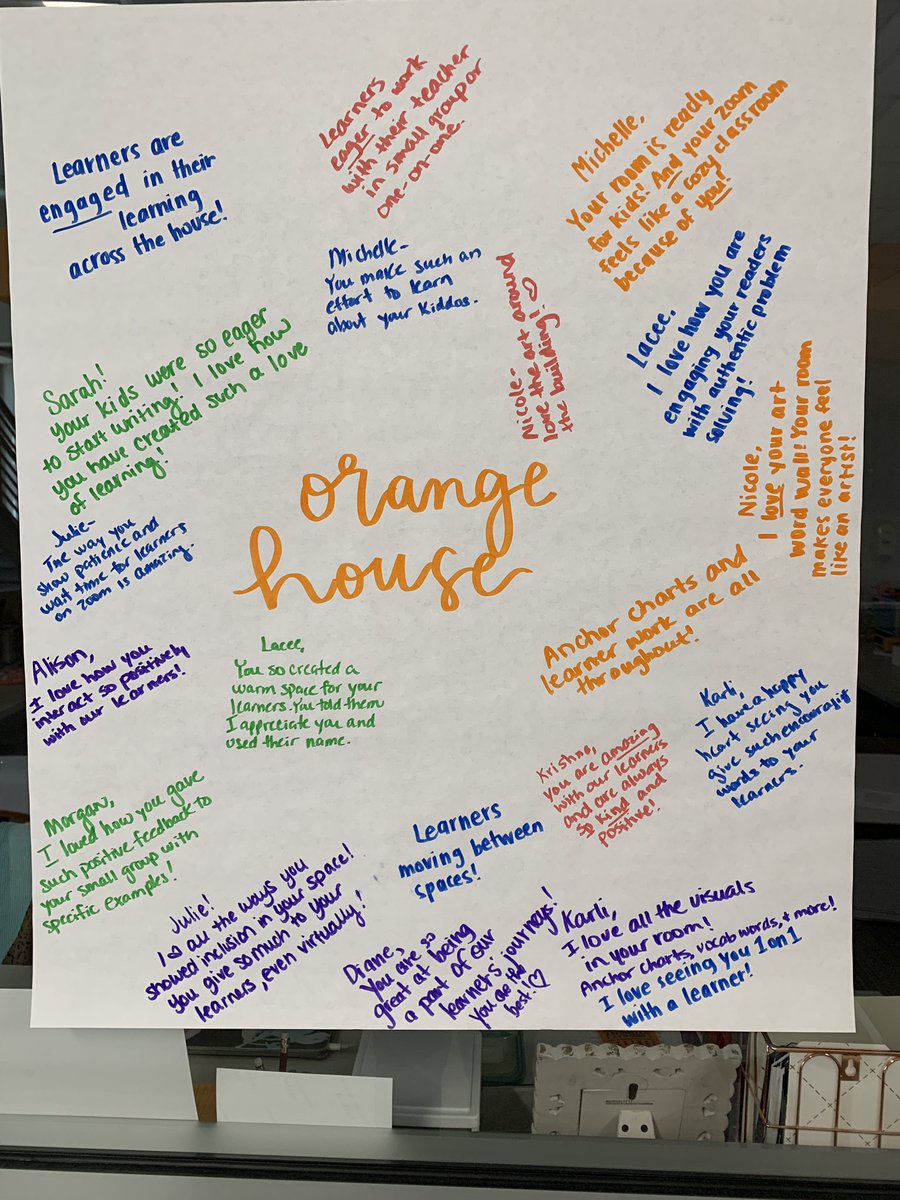 Learners are
engaged in their
learning
across the house!
Learners
eager to work
with their teacher
in small group or
one-on-one.
Michelle,
Your room is ready
for kids! And your zoom
feels like a cozy classroom
because of you!
Michelle-
You make such an
effort to learn
about your kiddos.
Nicole-
love the art around
the building! ♡
Lacee,
I love how you are
engaging your readers
with authentic problem
solving!
Sarah!
your kids were so eager
to start writing! I love how
you have created such a love
of learning!
Nicole,
I love your art
word wall! Your room
makes everyone feel
like an artist!
orange
house
Julie-
The way you
show patience and
wait time for learners
on zoom is amazing.
Anchor charts and
learner work are all
throughout!
Alison,
I love how you
interact so positively
with our learners!
Lacee,
You so created a
warm space for your
learners. You told them
I appreciate you and
used their name.
Karli,
I have a happy
heart seeing you
give such encouraging
words to your
learners.
Krishna,
you are amazing
with our learners
and are always
so kind and
positive!
Morgan,
I loved how you gave
such positive feedback to
your small group with
specific examples!
Learners
moving between
spaces!
Julie!
I ♡ all the ways you
showed inclusion in your space!
You give so much to your
learners, even virtually!
Diane,
You are so
great at being
a part of our
learner's' journeys!
you are the
best! ♡
Karli,
I love all the visuals
in your room!
Anchor charts, vocab words, + more!
I love seeing you 1 on 1
with a learner!